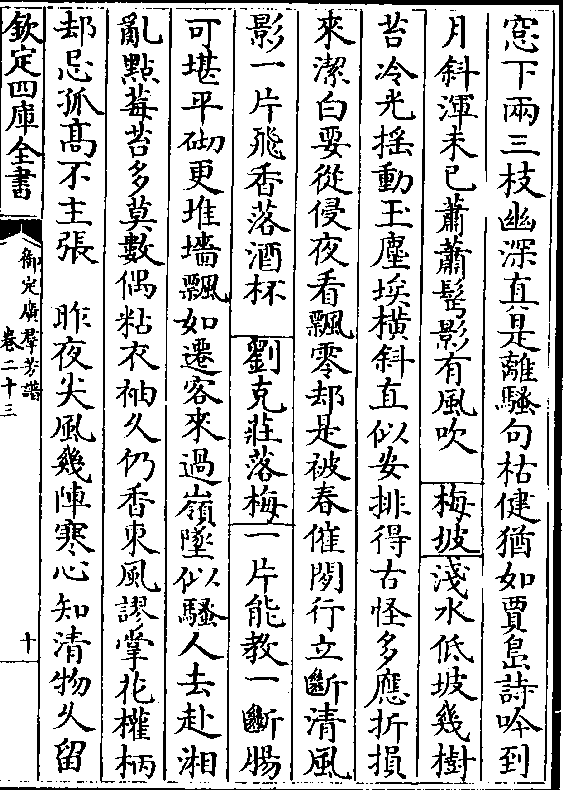 窓下兩三枝幽深真是離騷句枯健猶如賈島詩吟到
月斜渾未已蕭蕭鬂影有風吹　梅坡淺水低坡幾樹
苔冷光揺動玉塵埃横斜直似安排得古怪多應折損
來潔白要從侵夜看飄零却是被春催閑行立斷清風
影一片飛香落酒杯　劉克莊落梅一片能教一斷腸
可堪平砌更堆墻飄如遷客來過嶺墜似騷人去赴湘
亂點莓苔多莫數偶粘衣袖久仍香東風謬掌花權柄
却忌孤高不主張　昨夜尖風幾陣寒心知清物久留
欽定四庫全書
御定廣羣芳譜
卷二十三
十